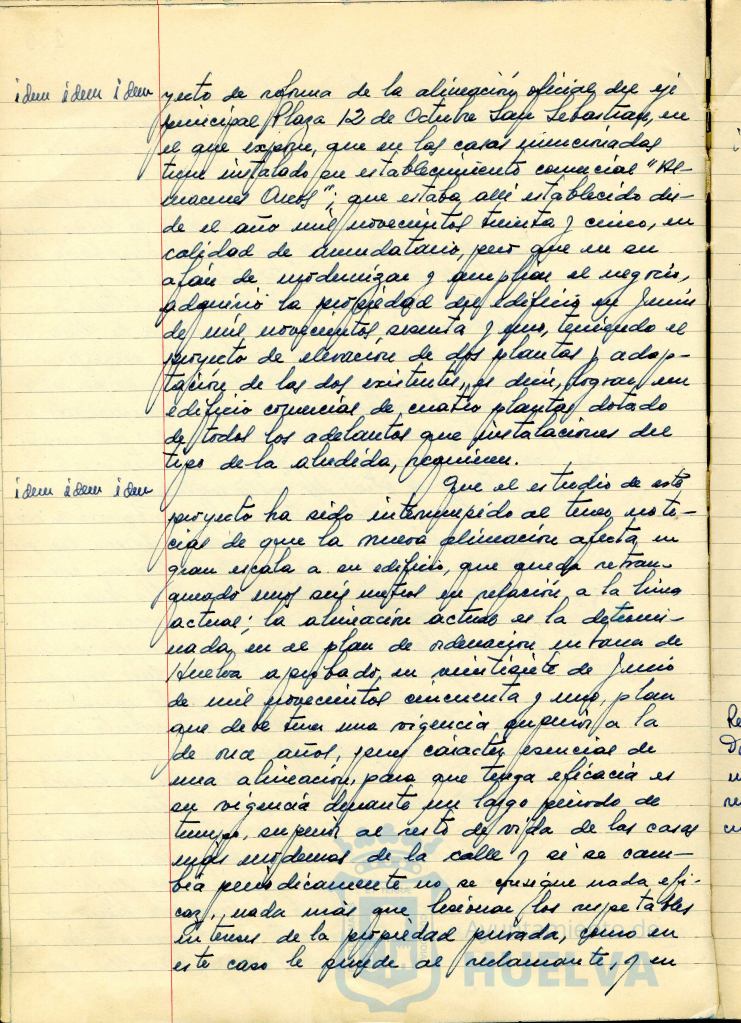 idem idem idem
yecto de reforma de la alineación oficial del eje
principal Plaza 12 de Octubre San Sebastian, en
el que expone, que en las casas mencionadas
tiene instalado su establecimiento comercial "Al-
macenes Arcos"; que estaba allí establecido des-
de el año mil novecientos treinta y cinco, en
calidad de arrendatario, pero que en su
afán de modernizar y ampliar el negocio,
adquirió la propiedad del edificio en Junio
de mil novecientos sesenta y uno, teniendo el
proyecto de elevación de dos plantas y adap-
tación de las dos existentes, es decir, lograr un
edificio comercial de cuatro plantas dotado
de todos los adelantos que instalaciones del
tipo de la aludida, requieren.
idem idem idem
Que el estudio de este
proyecto ha sido interrumpido al tener noti-
cias de que la nueva alineación afecta en
gran escala a su edificio, que queda retran-
queado unos seis metros en relación a la linea
actual; la alineación actual es la determi-
nada en el plan de ordenacion urbana de
Huelva aprobado en veintisiete de Junio
de mil novecientos cincuenta y uno, plan
que debe tener una vigencia superior a la
de once años, pues carácter esencial de
una alineación, para que tenga eficacia es
su vigencia durante un largo periodo de
tiempo, superior al resto de vida de las casas
más modernas de la calle y si se cam-
bia periódicamente no se consigue nada efi-
caz, nada más que lesionar los respetables
intereses de la propiedad privada, como en
este caso le sucede al reclamante, y en
Ayuntamiento de
HUELVA